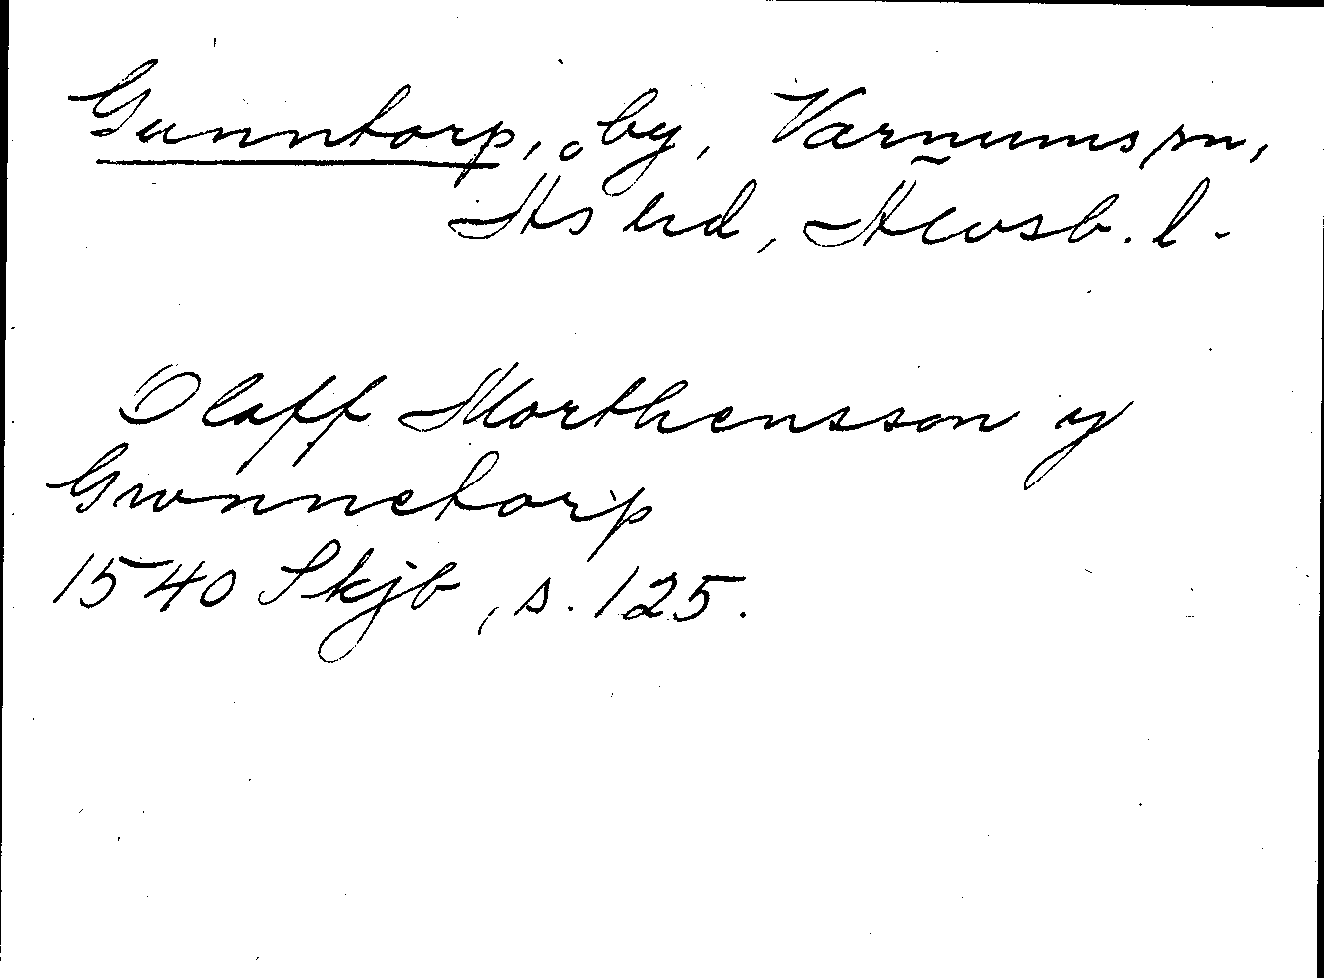 Gunntorp, by, Varnums sn,
Ås hd, Älvsb. l.
Olaff Morthensson y
Gwnnetorp
1540 Skjb, s. 125.